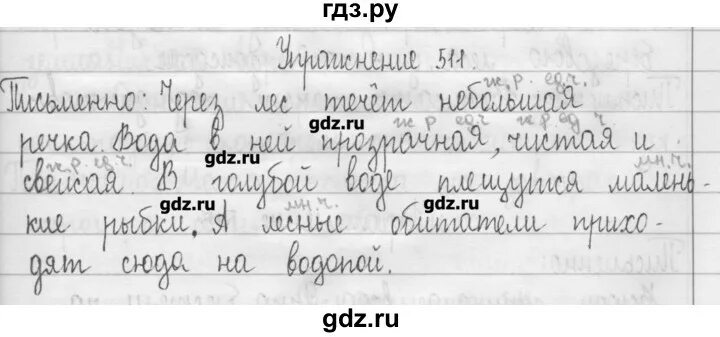 гдз.ру
Упражнение 511
ж.р. ед.ч.
Письменно: Через лес течёт небольшая
gdz.ru gdz.ru
ж.р. ед.ч. ж.р. ед.ч.
речка. Вода в ней прозрачная, чистая и
ж.р. ед.ч. мн.ч.
свежая. В голубой воде плещутся малень-
gdz.ru gdz.ru
мн.ч.
кие рыбки. А лесные обитатели прихо-
дят сюда на водопой.
gdz.ru